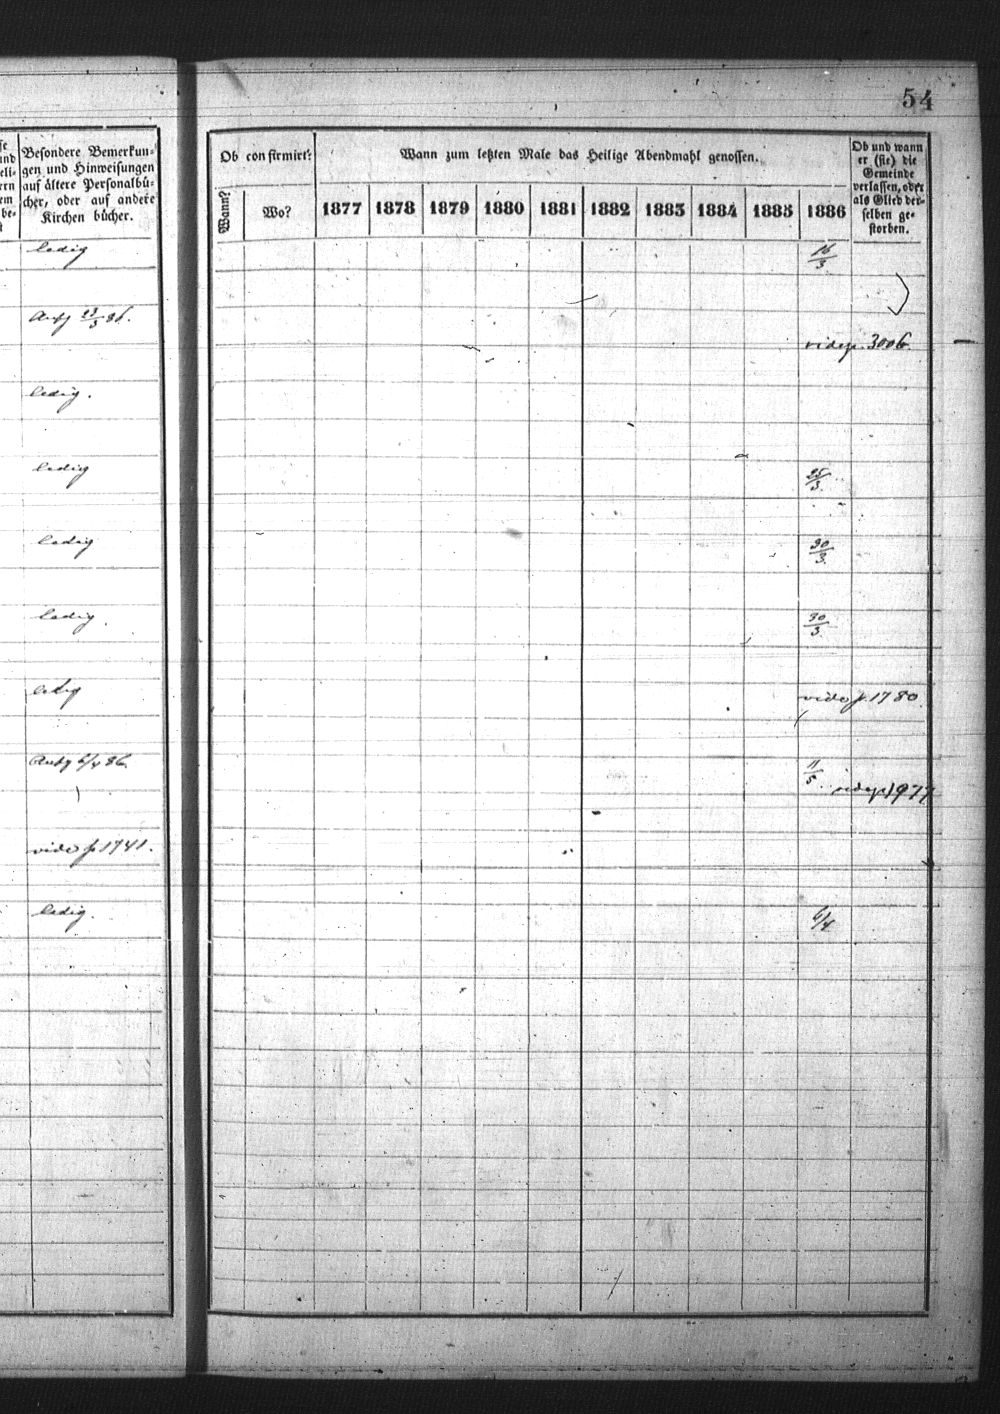 54
Besondere Bemerkun-
gen und Hinweisungen
auf ältere Personalbü-
cher, oder auf andere
Kirchen bücher.
Ob confirmirt?
Wann?
Wo?
Wann zum letzten Male das Heilige Abendmahl genossen.
1877 1878 1879 1880 1881 1882 1883 1884 1885 1886
Ob und wann
er (sie) die
Gemeinde
verlassen, oder
als Glied der-
selben ge-
storben.
ledig 16/3
23/3 86.
vide p. 3006
ledig.
ledig 25/3.
ledig 30/3.
ledig. 30/3
ledig vide p. 1780.
6/4 86. 11/5. vide p. 1977
vide p 1741.
ledig. 6/4